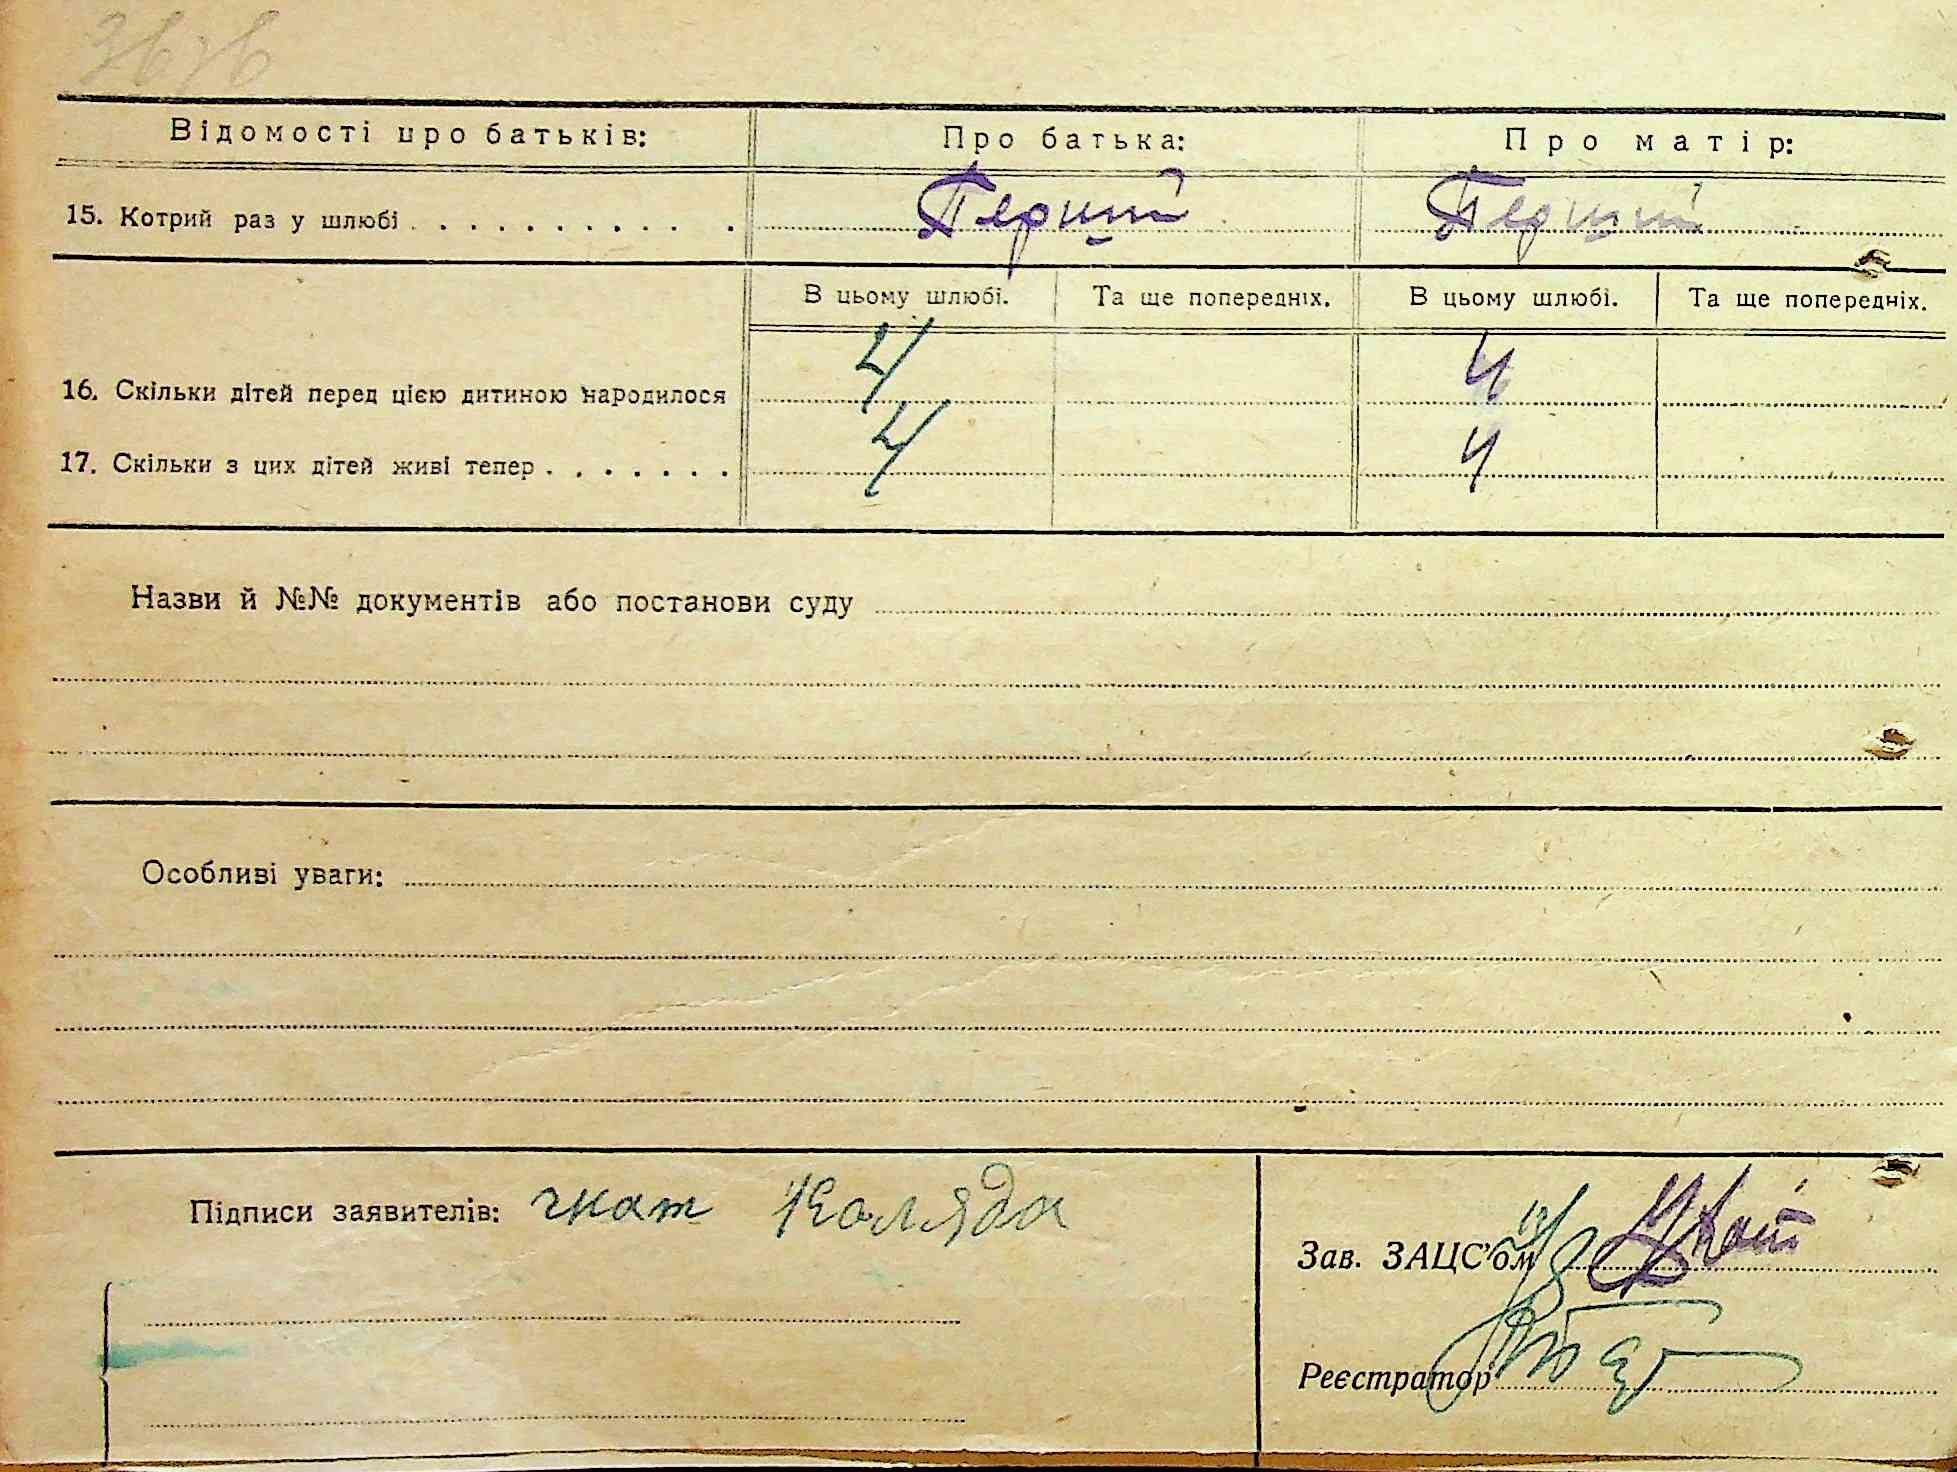 Відомості про батьків: Про батька: Про матір:
15. Котрий раз у шлюбі . . . . . . . . . . . . Перший Перший
В цьому шлюбі. Та ще попередніх. В цьому шлюбі. Та ще попередніх.
16. Скільки дітей перед цією дитиною народилося 4 4
17. Скільки з цих дітей живі тепер . . . . . . . 4 4
Назви й №№ документів або постанови суду
Особливі уваги:
Підписи заявителів: Коляда
Зав. ЗАЦС'ом
Реєстратор